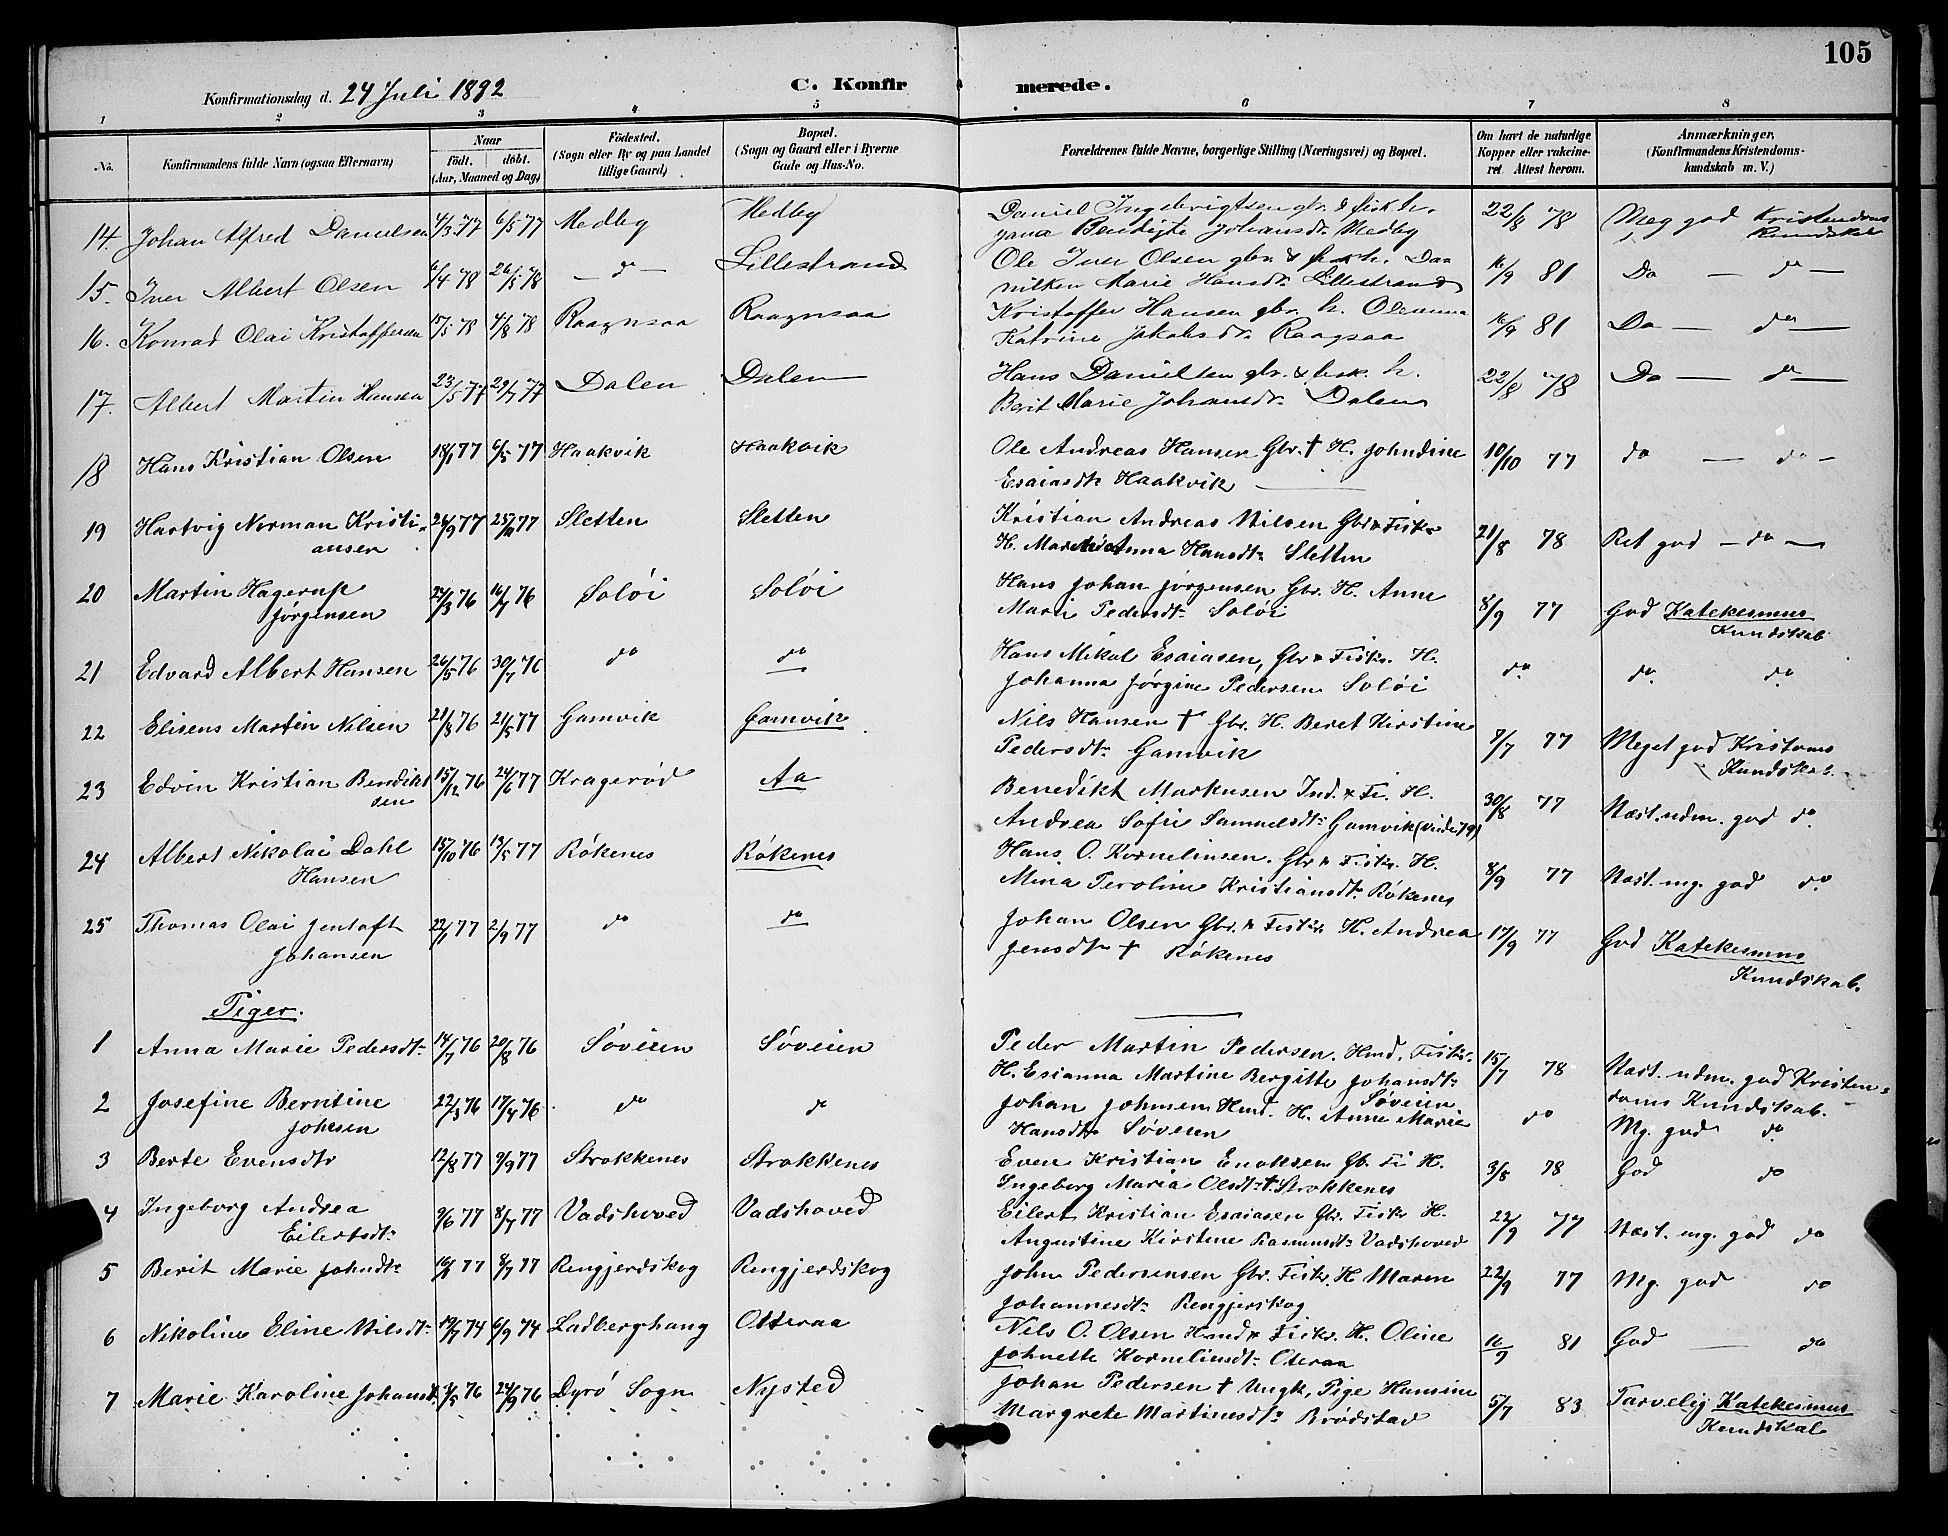 105
Konfirmationsdag d. 24 Juli 1892 C. Konfir merede.
1 2 3 4 5 6 7 8
No. Konfirmandens fulde Navn (ogsaa Efternavn) Naar født. døbt. (Aar, Maaned og Dag) Fødested. (Sogn eller By og paa Landet tillige Gaard) Bopæl. (Sogn og Gaard eller i Byerne Gade og Hus-No. Forældrenes fulde Navne, borgerlige Stilling (Næringsvei) og Bopæl. Om havt de naturlige Kopper eller vakcineret Attest herom. Anmærkninger, (Konfirmandens Kristendomskundskab m. V.)
14. Johan Alfred Danielsen 4/3 77 6/5 77 Medby Medby Daniel Ingebrigtsen gbr. & fisk h. 22/8 78 Meg god Kristendoms
Jana Bendigte Johansdt. Medby Kundskab
15. Iver Albert Olsen 6/4 78 26/5 78 — do — Lillestrand Ole Iver Olsen gbr. & fisk h. Daa 16/9 81 Do — do —
nilken Marie Hansdt. Lillestrand
16. Konrad Olai Kristoffersen 15/5 78 4/8 78 Raagnsaa Raagnsaa Kristoffer Hansen gbr. h. Oleanna 16/9 81 Do — do —
Katrine Jakobsdt. Raagsaa
17. Albert Martin Hansen 23/5 77 29/7 77 Dalen Dalen Hans Danielsen gbr. & fisk. h. 22/8 78 Do — do —
Berit Marie Johansdt. Dalen
18 Hans Kristian Olsen 18/1 77 6/5 77 Haakvik Haakvik Ole Andreas Hansen Gbr. † H. Johndine 10/10 77 do — do —
Esaiasdt. Haakvik
19 Hartvig Norman Kristi- 24/9 77 25/11 77 Sletten Sletten Kristian Andreas Nilsen Gbr & Fisk 21/8 78 Ret god — do —
ansen H. Anna Hansdt. Sletten
20 Martin Hagerup 24/3 76 16/7 76 Soløi Soløi Hans Johan Jørgensen Gbr. H. Anne 8/9 77 God Katekesmus
Jørgensen Mari Pedersdt. Soløi Kundskab
21 Edvard Albert Hansen 26/5 76 30/7 76 do do Hans Mikal Esaiasen, Gbr & Fisk. H. do. do. do.
Johanna Jørgine Pedersen Soløi
22 Eliseus Martin Nilsen 21/3 76 21/5 77 Gamvik Gamvik Nils Hansen † Gbr. H. Beret Kirstine 9/7 77 Meget god Kristoms
Pedersdt. Gamvik Kundskab.
23 Edvin Kristian Bendikt 15/12 76 24/6 77 Kragerød Aa Benedikt Markusen Ind. & Fi. H. 30/8 77 Næst. udm. god do.
sen Andrea Sofie Samuelsdt. Gamvik
24 Albert Nikolai Dahl 15/10 76 13/5 77 Røkenes Røkenes Hans O. Kornelinsen. Gbr & Fisk. H. 8/9 77 Næst. mg. god do.
Hansen Mina Peroline Kristiansdt. Røkenes
25 Thomas Olai Jentoft 22/1 77 2/9 77 do do Johan Olsen Gbr. & Fisk. H. Andrea 17/9 77 God Katekesmus
Johansen Jensdt † Røkenes Kundskab.
Piger.
1 Anna Marie Pedersdt. 14/7 76 20/8 76 Søveien Søveien Peder Martin Pedersen. Hmd. Fisk. 15/7 78 Næst. udm. god Kristen-
H. Esianna Martine Bergitte Johansdt. Søveien doms Kundskab.
2 Josefine Berntine 22/3 76 17/4 76 do do Johan Johnsen Hmd. H. Anne Marie do Mg. god do.
Johesen Hansdt. Søveien
3 Berte Evensdtr 12/8 77 9/9 77 Strokkenes Strokkenes Even Kristian Enoksen Gb. Fi H. 3/8 78 God do
Ingeborg Maria Olsdt. † Strokkenes
4 Ingeborg Andrea 9/6 77 8/7 77 Vadshoved Vadshoved Eilert Kristian Esaiasen Gbr. Fisk H. 22/9 77 Næst. mg. god do
Eilertsdt. Augustine Kirstine Rasmusdt. Vadshoved
5 Berit Marie Johndt. 77 8/7 77 Rengjerdskog Rengjerdskog John Pedersensen Gbr. Fisk. H. Maren 22/9 77 Mg. god do
Johannesdt. Rengjerskog
6 Nikoline Eline Nilsdt. 19/7 74 6/9 74 Ladberghang Otteraa Nils O. Olsen Hmd & Fisk. H. Oline 16/9 81 God — do
Johnette Kornelinsdt. Oteraa
7 Marie Karoline Johansdt. 76 24/9 76 Dyrø Sogn Nysted Johan Pedersen † Ungk, Pige Hansine 5/7 83 Tarvelig Katekesmus
Margrete Martinusdt. Brødstad Kundskab